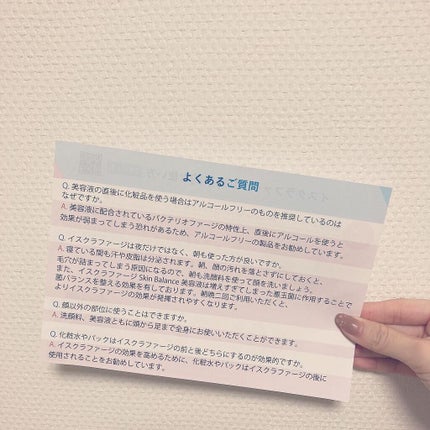 よくあるご質問
Q. 美容液の直後に化粧品を使う場合はアルコールフリーのものを推奨しているのは
なぜですか。
A. 美容液に配合されているバクテリオファージの特性上、直後にアルコールを使うと
効果が弱まってしまう恐れがあるため、アルコールフリーの製品をお勧めしています。
Q. イスクラファージは夜だけではなく、朝も使った方が良いですか。
A. 寝ている間も汗や皮脂は分泌されます。朝、顔の汚れを落とさずにしておくと、
毛穴が詰まってしまう原因になるので、朝も洗顔料を使って顔を洗いましょう。
また、イスクラファージ Skin Balance 美容液は増えすぎてしまった悪玉菌に作用することで
菌バランスを整える効果を有しております。朝晩二回ご利用いただくと、
よりイスクラファージの効果が発揮されやすくなります。
Q. 顔以外の部位に使うことはできますか。
A. 洗顔料、美容液ともに頭から足まで全身にお使いいただくことができます。
Q. 化粧水やパックはイスクラファージの前と後どちらにするのが効果的ですか。
A. イスクラファージの効果を高めるために、化粧水やパックはイスクラファージの後に
使用されることをお勧めしています。